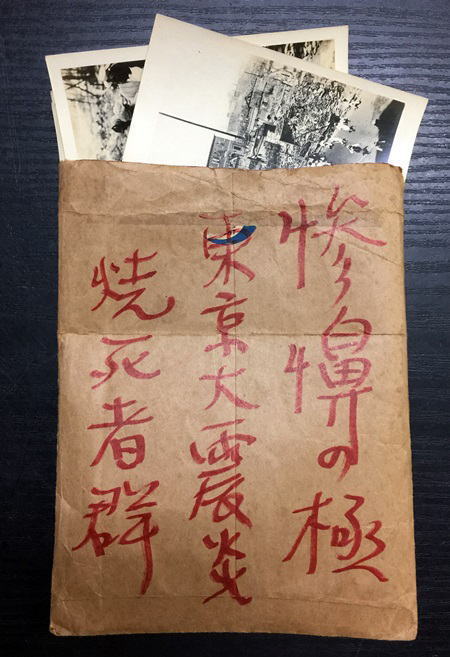 惨鼻の極
東京大震災
焼死者群